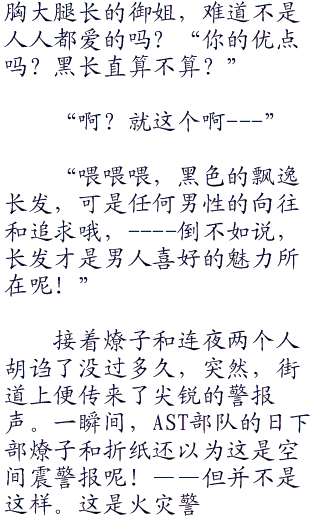 胸大腿长的御姐，难道不是
人人都爱的吗？“你的优点
吗？黑长直算不算？”
“啊？就这个啊---”
“喂喂喂，黑色的飘逸
长发，可是任何男性的向往
和追求哦，----倒不如说，
长发才是男人喜好的魅力所
在呢！”
接着燎子和连夜两个人
胡诌了没过多久，突然，街
道上便传来了尖锐的警报
声。一瞬间，AST部队的日下
部燎子和折纸还以为这是空
间震警报呢！——但并不是
这样。这是火灾警